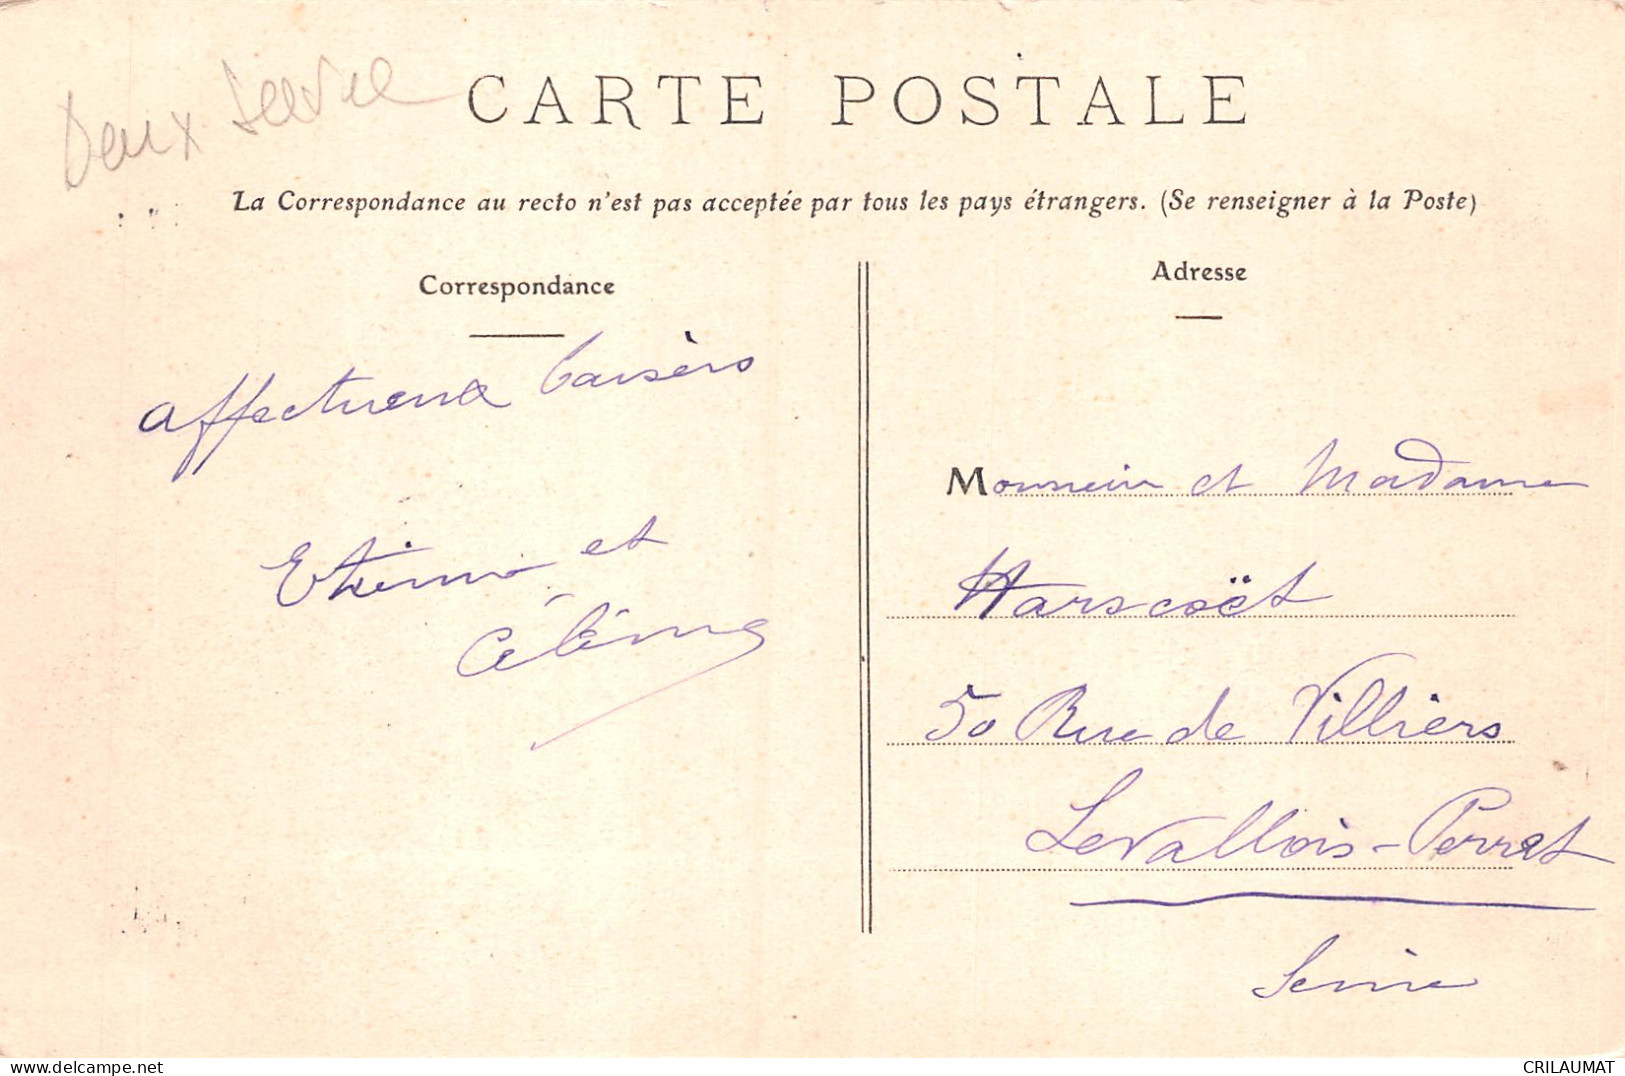 Deux Sevre
CARTE POSTALE
La Correspondance au recto n'est pas acceptée par tous les pays étrangers. (Se renseigner à la Poste)
Correspondance
affectueux baisers
Etienne et
Célème
Adresse
Monsieur et Madame
Harscoët
50 Rue de Villiers
Levallois-Perret
Seine
delcampe.net
CRILAUMAT